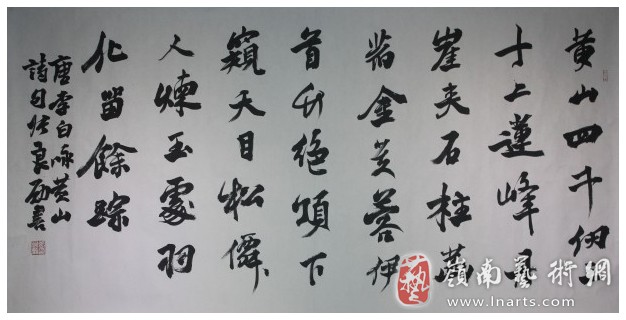 黄山四千仞三
十二蓮峰丹
崖夾石柱菡
萏金芙蓉伊
昔升絶頂下
窺天目松僊
人煉玉處羽
化留餘踪
唐李白咏黄山
詩句張良勛書
藝
嶺南藝術網
www.lnarts.com